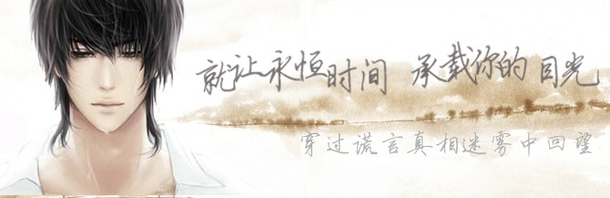 就让永恒时间 承载你的目光
穿过谎言真相迷雾中回望